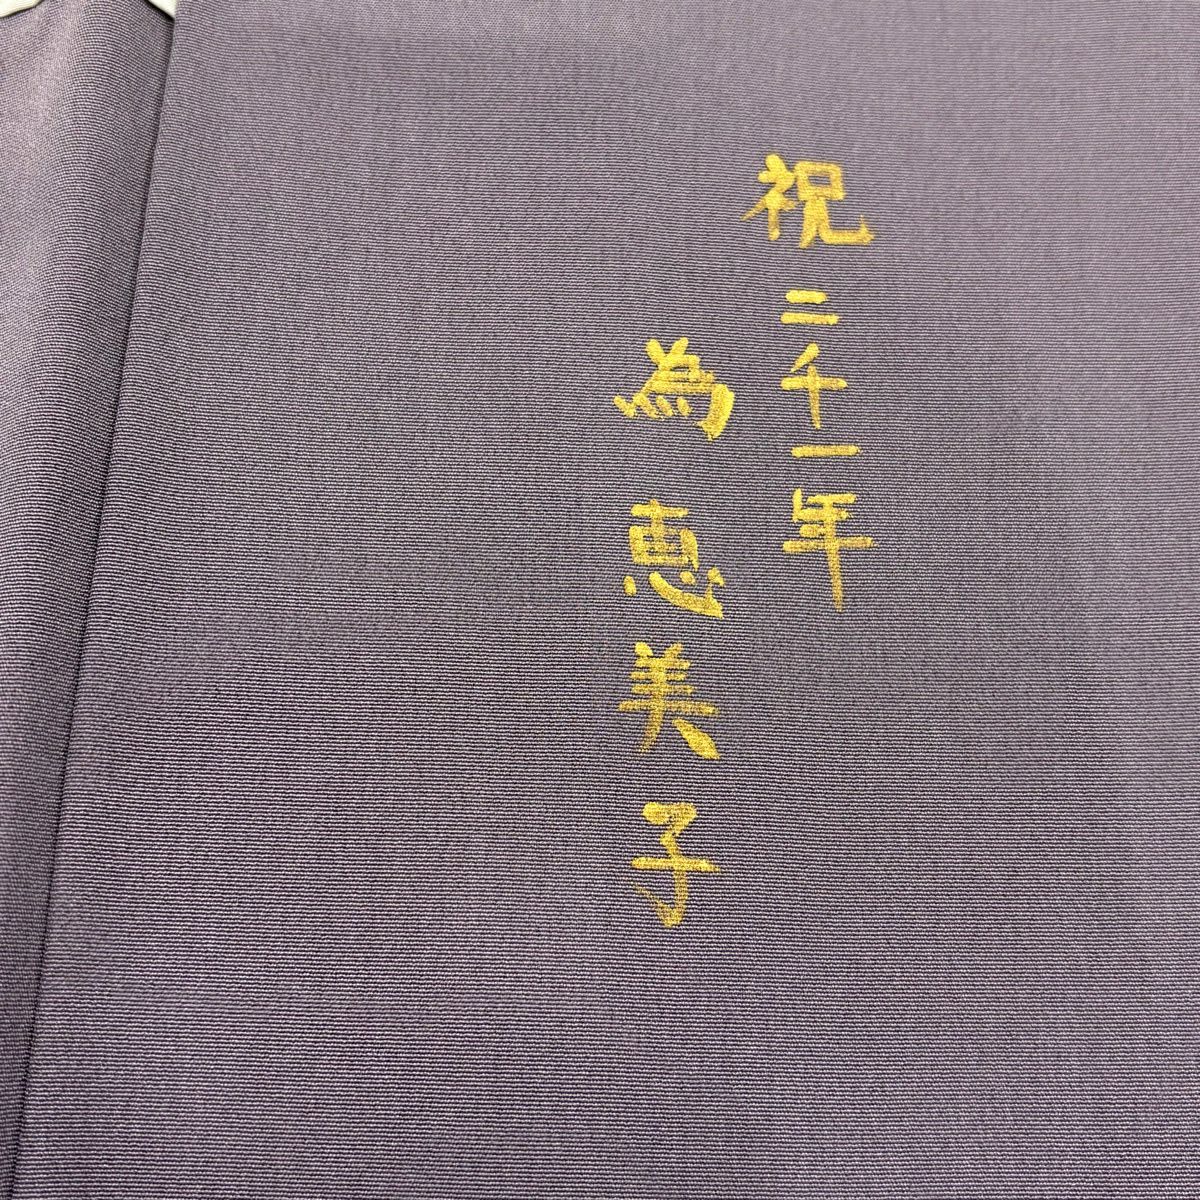 祝二千一年
為恵美子